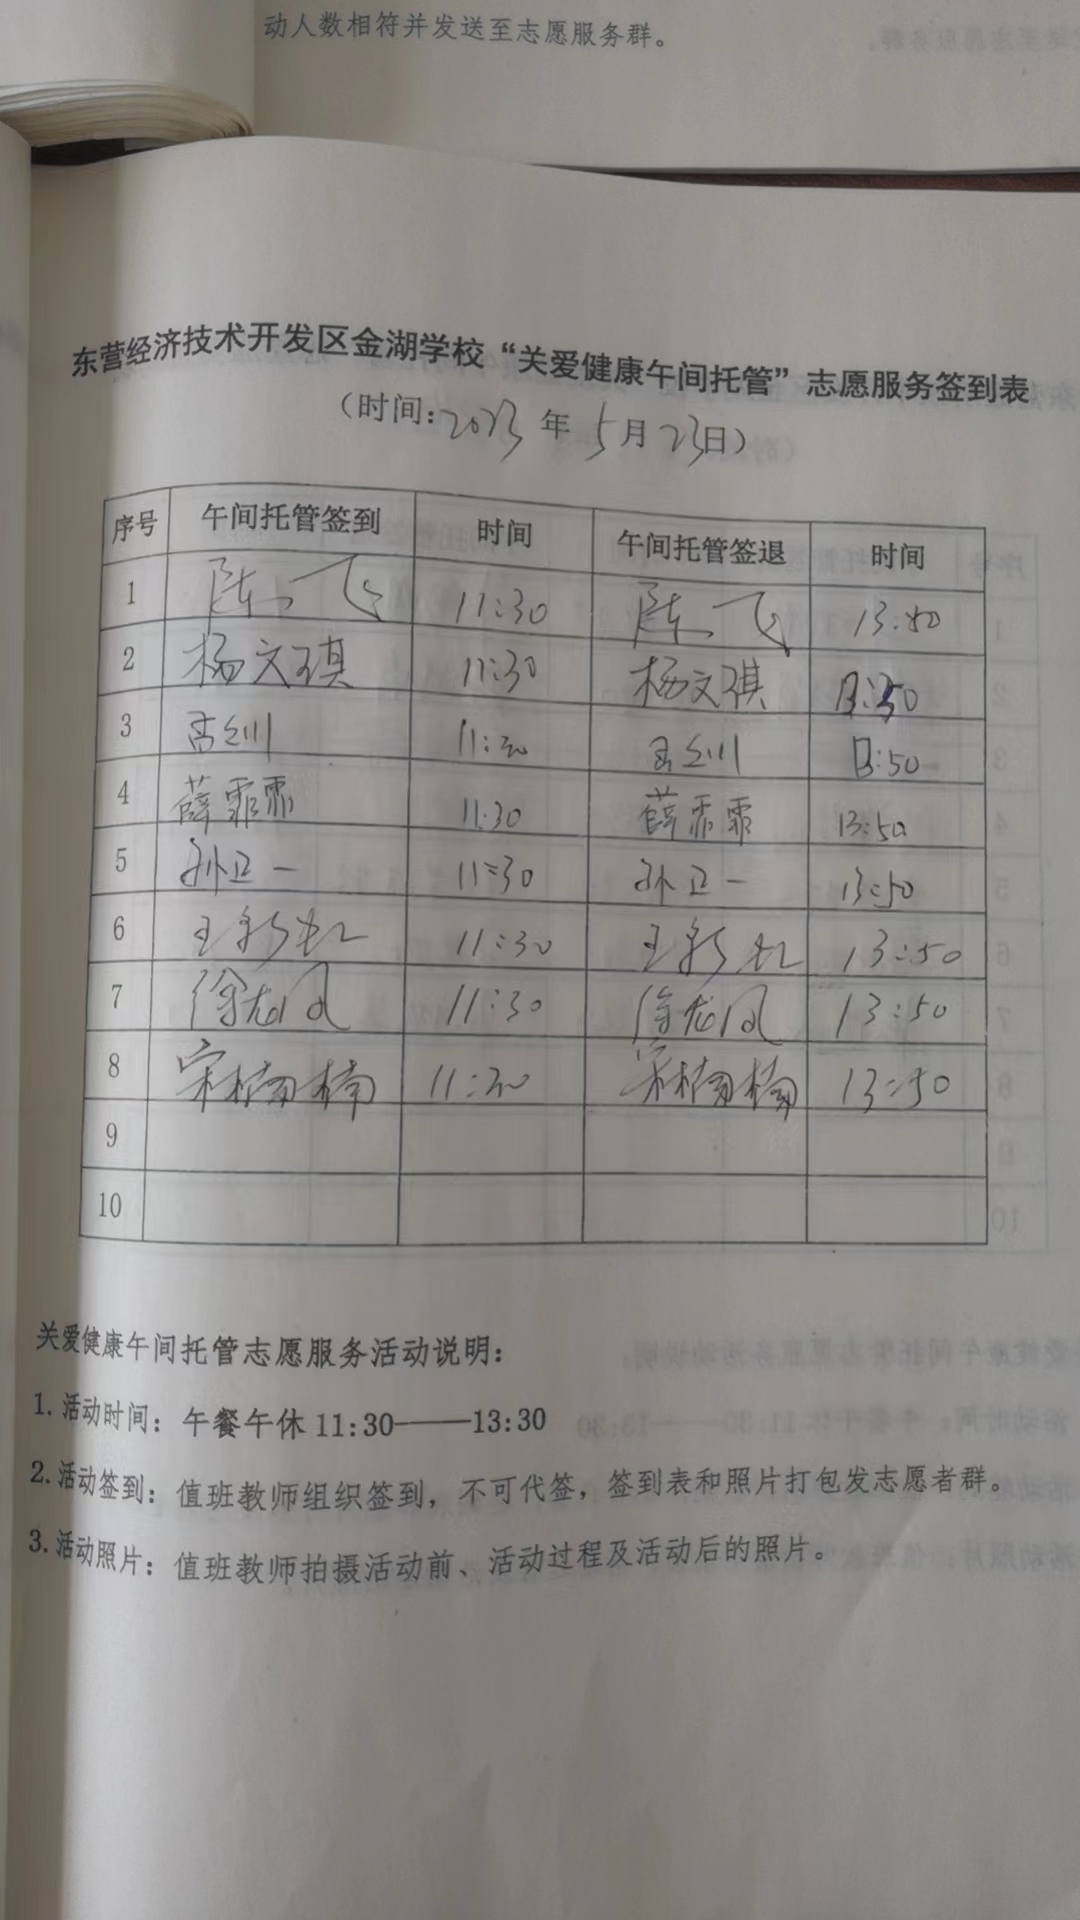 动人数相符并发送至志愿服务群。
东营经济技术开发区金湖学校“关爱健康午间托管”志愿服务签到表
（时间:2023年5月23日）
序号 午间托管签到 时间 午间托管签退 时间
1 陈飞 11:30 陈飞
2 杨文琪 11:30 杨文琪 13:50
3 11:30 13:50
4 薛霏霏 11:30 薛霏霏 13:50
5 孙卫一 11:30 孙卫一 13:50
6 王新虹 11:30 王新虹 13:50
7 徐龙凤 11:30 徐龙凤 13:50
8 宋楠楠 11:30 宋楠楠 13:50
9
10
关爱健康午间托管志愿服务活动说明：
1. 活动时间：午餐午休 11:30——13:30
2. 活动签到：值班教师组织签到，不可代签，签到表和照片打包发志愿者群。
3. 活动照片：值班教师拍摄活动前、活动过程及活动后的照片。